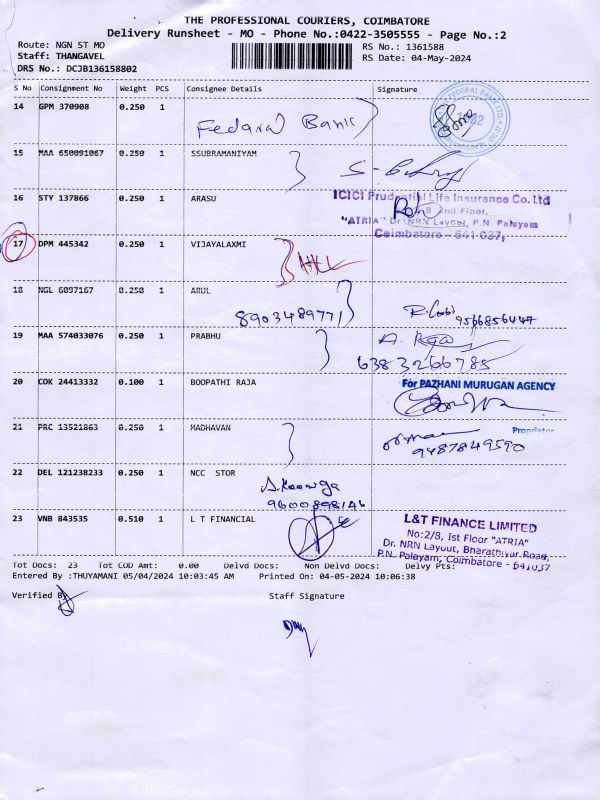 THE PROFESSIONAL COURIERS, COIMBATORE
Delivery Runsheet - MO - Phone No.:0422-3505555 - Page No.:2
Route: NGN ST MO
RS No.: 1361588
Staff: THANGAVEL
RS Date: 04-May-2024
DRS No.: DCJB136158802
S No Consignment No Weight PCS Consignee Details Signature
14 GPM 370908 0.250 1
Federal Bank
FEDERAL BANK LTD.
15 MAA 650091067 0.250 1 SSUBRAMANIYAM
16 STY 137866 0.250 1 ARASU
ICICI Prudential Life Insurance Co. Ltd
2nd Floor,
"ATRIA" Dr. NRN Layout, P.N. Palayam
Coimbatore - 641 037.
17 DPM 445342 0.250 1 VIJAYALAXMI
18 NGL 6097167 0.250 1 ARUL
8903489771
9566856447
19 MAA 574033076 0.250 1 PRABHU
6383266785
20 COK 24413332 0.100 1 BOOPATHI RAJA
For PAZHANI MURUGAN AGENCY
Proprietor
21 PRC 13521863 0.250 1 MADHAVAN
9487849590
22 DEL 121238233 0.250 1 NCC STOR
9600898146
23 VNB 843535 0.510 1 L T FINANCIAL
L&T FINANCE LIMITED
No:2/8, Ist Floor "ATRIA"
Dr. NRN Layout, Bharathiyar Road,
P.N. Palayam, Coimbatore - 641037
Tot Docs: 23 Tot COD Amt: 0.00 Delvd Docs: Non Delvd Docs: Delvy Pts:
Entered By :THUYAMANI 05/04/2024 10:03:45 AM Printed On: 04-05-2024 10:06:38
Verified By
Staff Signature